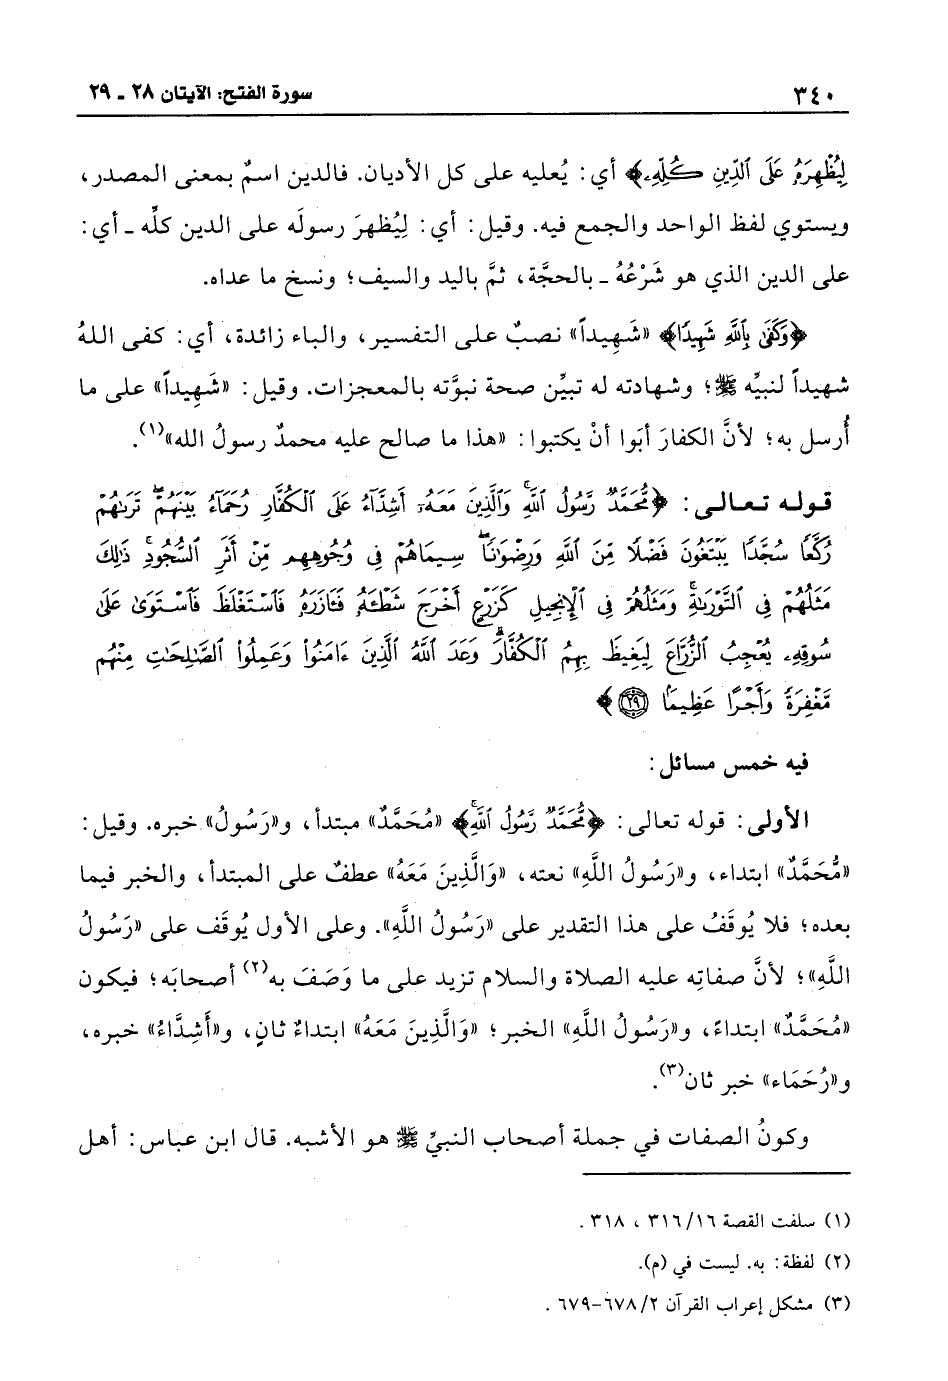 ٣٤٠ سورة الفتح: الآيتان ٢٨ ـ ٢٩
لِيُظْهِرَهُ عَلَى ٱلدِّينِ كُلِّهِۦ﴾ أي: يُعليه على كل الأديان. فالدين اسمٌ بمعنى المصدر،
ويستوي لفظ الواحد والجمع فيه. وقيل: أي: لِيُظهرَ رسولَه على الدين كلِّه ـ أي:
على الدين الذي هو شَرْعُهُ ـ بالحجَّة، ثمَّ باليد والسيف؛ ونسخ ما عداه.
﴿وَكَفَىٰ بِٱللَّهِ شَهِيدًا﴾ «شَهِيداً» نصبٌ على التفسير، والباء زائدة، أي: كفى اللهُ
شهيداً لنبيِّه ﷺ؛ وشهادته له تبيِّن صحة نبوَّته بالمعجزات. وقيل: «شَهِيداً» على ما
أُرسل به؛ لأنَّ الكفارَ أبَوا أنْ يكتبوا: «هذا ما صالح عليه محمدٌ رسولُ الله»(١).
قوله تعالى: ﴿مُّحَمَّدٌ رَّسُولُ ٱللَّهِۚ وَٱلَّذِينَ مَعَهُۥٓ أَشِدَّآءُ عَلَى ٱلْكُفَّارِ رُحَمَآءُ بَيْنَهُمْۖ تَرَىٰهُمْ
رُكَّعًا سُجَّدًا يَبْتَغُونَ فَضْلًا مِّنَ ٱللَّهِ وَرِضْوَٰنًاۖ سِيمَاهُمْ فِى وُجُوهِهِم مِّنْ أَثَرِ ٱلسُّجُودِۚ ذَٰلِكَ
مَثَلُهُمْ فِى ٱلتَّوْرَىٰةِۚ وَمَثَلُهُمْ فِى ٱلْإِنجِيلِ كَزَرْعٍ أَخْرَجَ شَطْـَٔهُۥ فَـَٔازَرَهُۥ فَٱسْتَغْلَظَ فَٱسْتَوَىٰ عَلَىٰ
سُوقِهِۦ يُعْجِبُ ٱلزُّرَّاعَ لِيَغِيظَ بِهِمُ ٱلْكُفَّارَۗ وَعَدَ ٱللَّهُ ٱلَّذِينَ ءَامَنُوا۟ وَعَمِلُوا۟ ٱلصَّٰلِحَٰتِ مِنْهُم
مَّغْفِرَةً وَأَجْرًا عَظِيمًۢا ٢٩﴾
فيه خمس مسائل:
الأولى: قوله تعالى: ﴿مُّحَمَّدٌ رَّسُولُ ٱللَّهِۚ﴾ «مُحَمَّدٌ» مبتدأ، و«رَسُولُ» خبره. وقيل:
«مُّحَمَّدٌ» ابتداء، و«رَسُولُ اللَّهِ» نعته، «وَالَّذِينَ مَعَهُ» عطفٌ على المبتدأ، والخبر فيما
بعده؛ فلا يُوقَفُ على هذا التقدير على «رَسُولُ اللَّهِ». وعلى الأول يُوقَف على «رَسُولُ
اللَّهِ»؛ لأنَّ صفاتِه عليه الصلاة والسلام تزيد على ما وَصَفَ به(٢) أصحابَه؛ فيكون
«مُحَمَّدٌ» ابتداءً، و«رَسُولُ اللَّهِ» الخبر؛ «وَالَّذِينَ مَعَهُ» ابتداءٌ ثانٍ، و«أَشِدَّاءُ» خبره،
و«رُحَمَاء» خبر ثان(٣).
وكونُ الصفات في جملة أصحاب النبيِّ ﷺ هو الأشبه. قال ابن عباس: أهل
(١) سلفت القصة ٣١٦/١٦ ، ٣١٨ .
(٢) لفظة: به. ليست في (م).
(٣) مشكل إعراب القرآن ٦٧٨/٢-٦٧٩ .